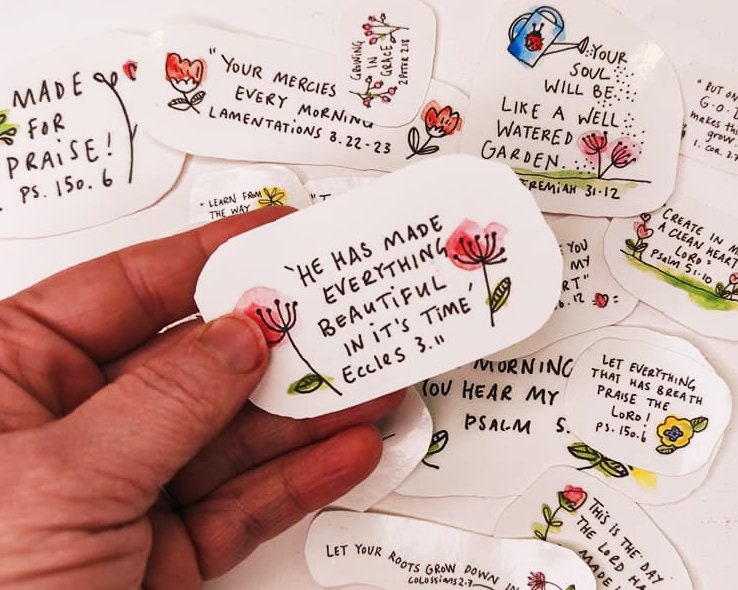 MADE
FOR
PRAISE!
PS. 150.6
"YOUR MERCIES
EVERY MORNING
LAMENTATIONS 3.22-23
GROWING
IN
GRACE
2 PETER 3.18
YOUR
SOUL
WILL BE
LIKE A WELL
WATERED
GARDEN.
JEREMIAH 31.12
"BUT ON
G.O.D
makes thi
grow.
1. COR. 3.7
"LEARN FROM
THE WAY
'HE HAS MADE
EVERYTHING
BEAUTIFUL
IN IT'S TIME'
Eccles 3.11
YOU
MY
RT"
.12
CREATE IN M
A CLEAN HEART
LORD"
Psalm 51.10
MORNING
YOU HEAR MY
PSALM 5.
LET EVERYTHING
THAT HAS BREATH
PRAISE THE
LORD!
PS. 150.6
THIS IS THE DAY
THE LORD HA
MADE
LET YOUR ROOTS GROW DOWN IN
COLOSSIANS 2.7